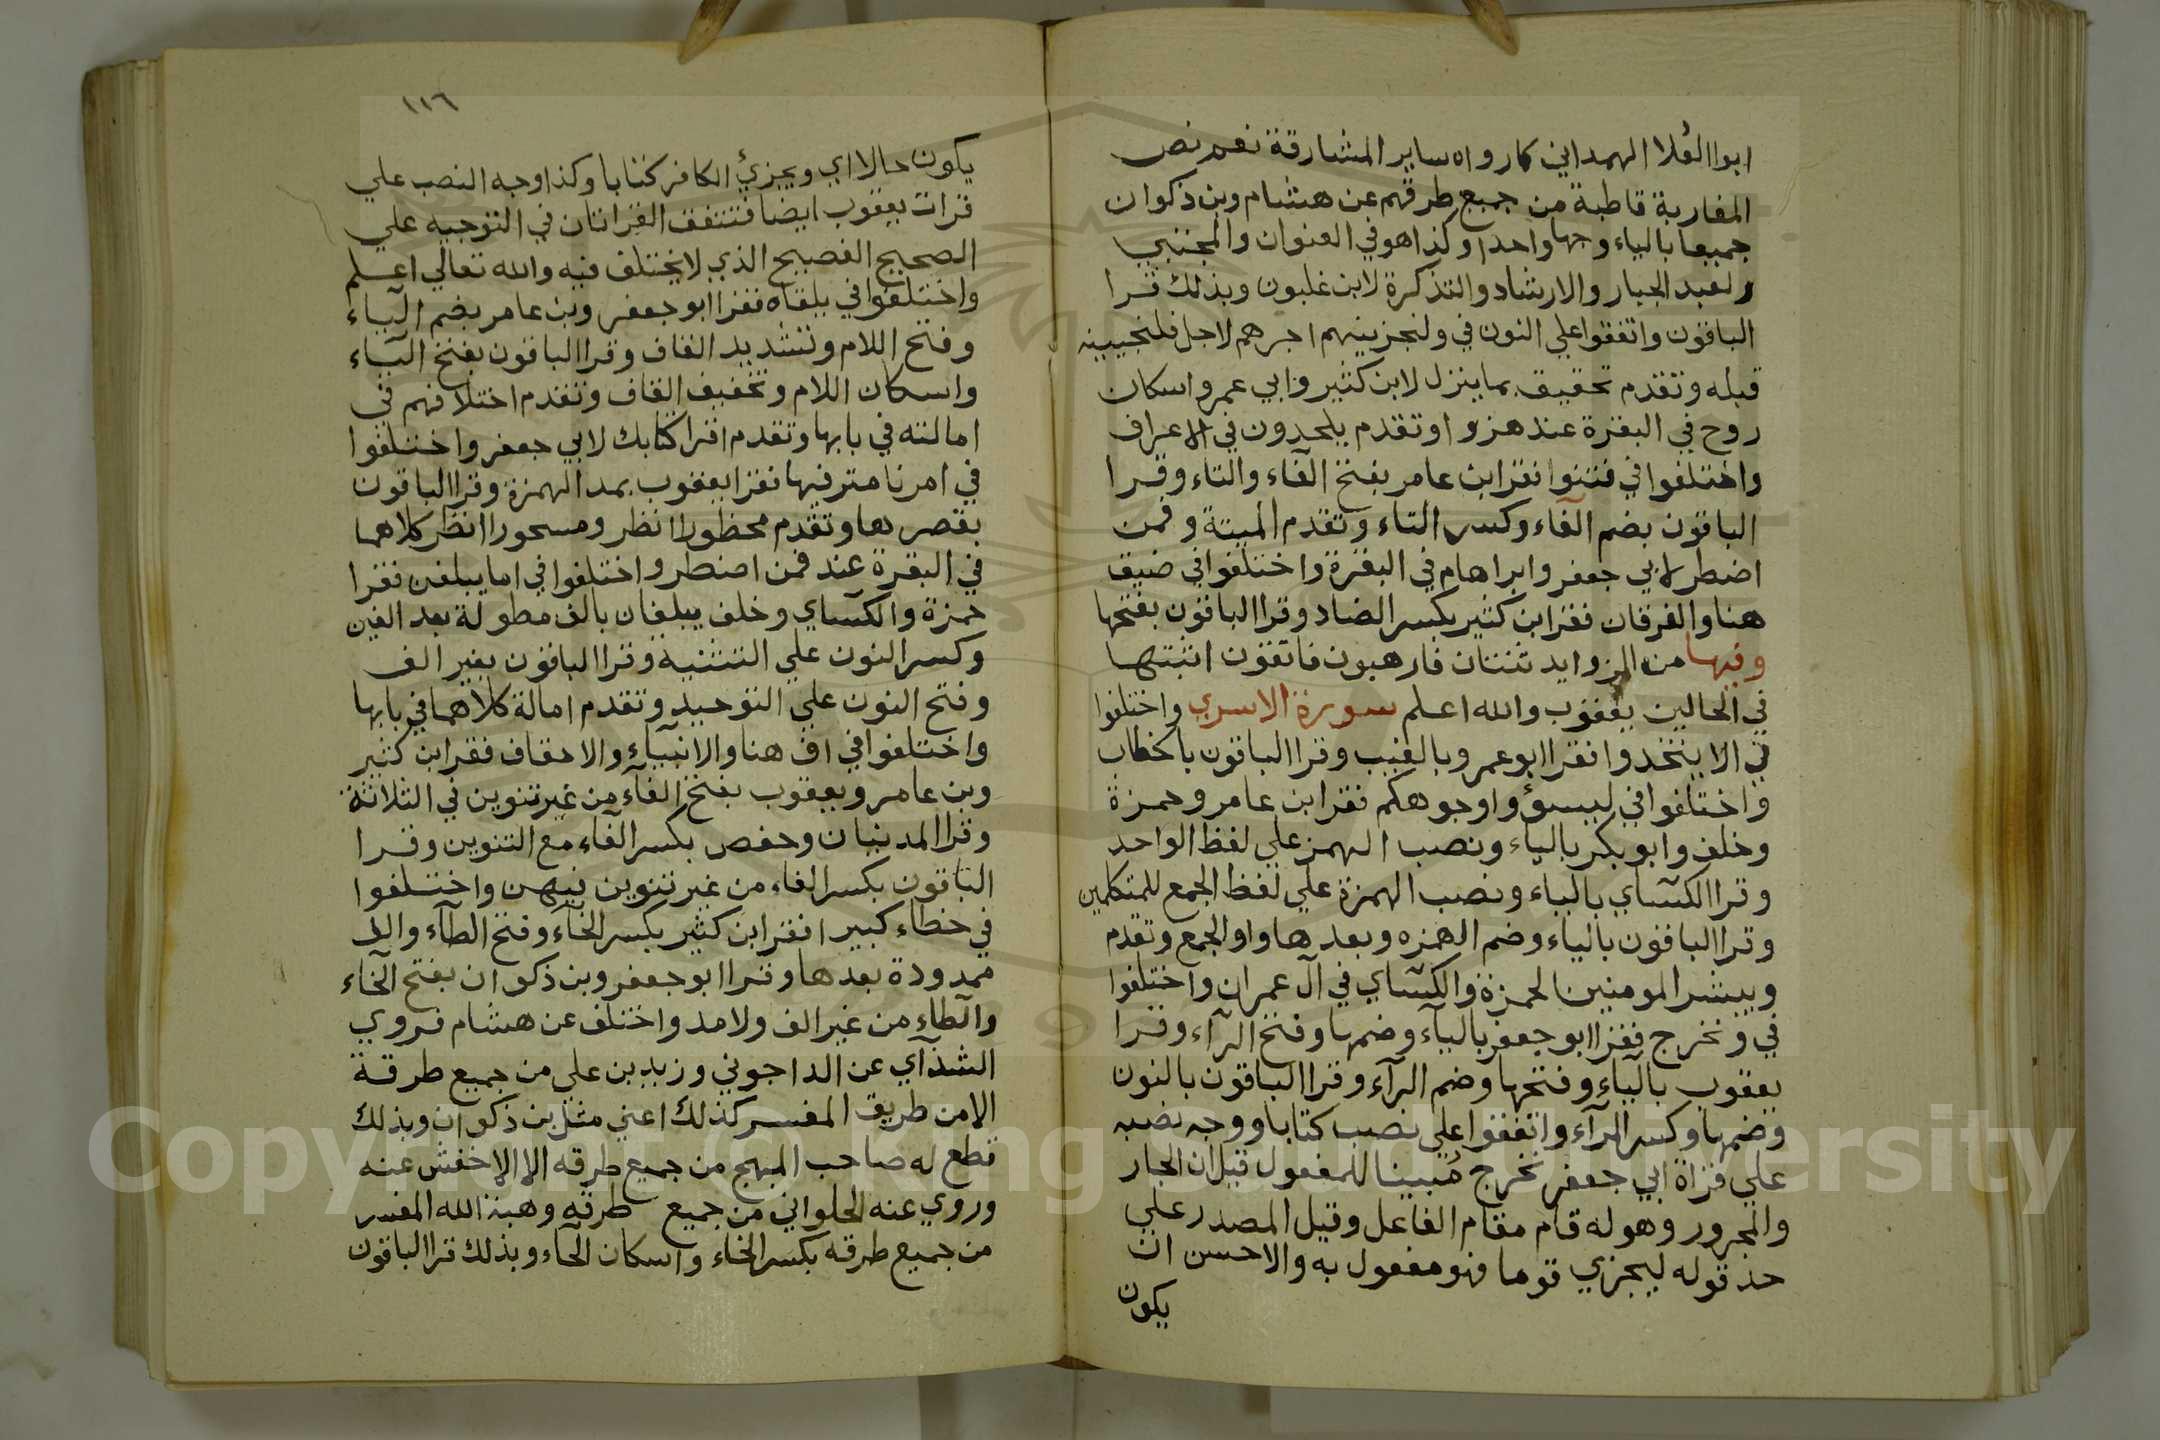 ابوا العلا الهمداني كما رواه ساير المشارقة نعم نص
المغاربة قاطبة من جميع طرقهم عن هشام وبن ذكوان
جميعا بالياء وجها واحدا وكذا هو في العنوان والمجتبي
لعبد الجبار والارشاد والتذكرة لابن غلبون وبذلك قرا
الباقون واتفقوا علي النون في ولنجزينهم اجرهم لاجل فلنحيينه
قبله وتقدم تخفيف بما ينزل لابن كثير وابي عمرو اسكان
روح في البقرة عند هزوا وتقدم يلحدون في الاعراف
واختلفوا في فتنوا فقرا بن عامر بفتح الفاء والتاء وقرا
الباقون بضم الفاء وكسر التاء وتقدم الميتة وفمن
اضطر لابي جعفر وابراهام في البقرة واختلفوا في ضيق
هنا والفرقان فقرا بن كثير بكسر الضاد وقرا الباقون بفتحها
وفيها من الزوايد ثنتان فارهبون فاتقون اثبتها
في الحالين يعقوب والله اعلم سورة الاسري واختلفوا
في الا يتخذوا فقرا ابو عمرو بالغيب وقرا الباقون بالخطاب
واختلفوا في ليسوؤا وجوهكم فقرا بن عامر وحمزة
وخلف وابو بكر بالياء ونصب الهمز علي لفظ الواحد
وقرا الكساي بالياء ونصب الهمزة علي لفظ الجمع للمتكلمين
وقرا الباقون بالياء وضم الهمزه وبعدها واو الجمع وتقدم
ويبشر المومنين لحمزة والكساي في آل عمران واختلفوا
في ونخرج فقرا ابو جعفر بالياء وضمها وفتح الراء وقرا
يعقوب بالياء وفتحها وضم الراء وقرا الباقون بالنون
وضمها وكسر الراء واتفقوا علي نصب كتابا ووجه نصبه
علي قراة ابي جعفر نخرج مبينا للمفعول قيل ان الجار
والمجرور وهو له قام مقام الفاعل وقيل المصدر علي
حد قوله ليجزي قوما فهو مفعول به والاحسن ان
يكون
١١٦
يكون حالا اي ويجزئ الكافر كتابا وكذا وجه النصب علي
قرات يعقوب ايضا فتتفق القراتان في التوجيه علي
الصحيح الفصيح الذي لا يختلف فيه والله تعالي اعلم
واختلفوا في يلقاه فقرا ابو جعفر وبن عامر بضم الياء
وفتح اللام وتشديد القاف وقرا الباقون بفتح الياء
واسكان اللام وتخفيف القاف وتقدم اختلافهم في
امالته في بابها وتقدم اقرا كتابك لابي جعفر واختلفوا
في امرنا مترفيها فقرا يعقوب بمد الهمزة وقرا الباقون
بقصرها وتقدم محظورا انظر ومسحورا انظر كلاهما
في البقرة عند فمن اضطر واختلفوا في اما يبلغن فقرا
حمزة والكساي وخلف يبلغان بالف مطولة بعد الغين
وكسر النون علي التثنية وقرا الباقون بغير الف
وفتح النون علي التوحيد وتقدم امالة كلاهما في بابها
واختلفوا في اف هنا والانبياء والاحقاف فقرا بن كثير
وبن عامر ويعقوب بفتح الفاء من غير تنوين في الثلاثة
وقرا المدنيان وحفص بكسر الفاء مع التنوين وقرا
الباقون بكسر الفاء من غير تنوين فيهن واختلفوا
في خطاء كبيرا فقرا بن كثير بكسر الخاء وفتح الطاء والف
ممدودة بعدها وقرا ابو جعفر وبن ذكوان بفتح الخاء
والطاء من غير الف ولا مد واختلف عن هشام فروي
الشذاي عن الداجوني وزيد بن علي من جميع طرقة
الا من طريق المفسر كذلك اعني مثل بن ذكوان وبذلك
قطع له صاحب المبهج من جميع طرقه الا الاخفش عنه
وروي عنه الحلواني من جميع طرقه وهبة الله المفسر
من جميع طرقه بكسر الخاء واسكان الحاء وبذلك قرا الباقون
Copyright © King Saud University